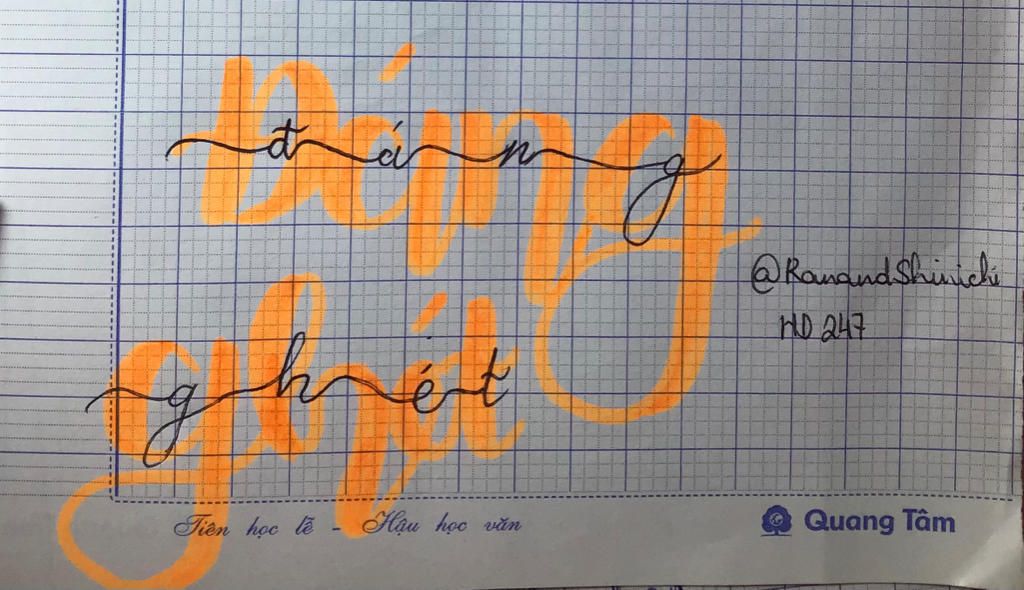 Đáng
đáng
@RanandShinichi
HD 247
ghét
ghét
Tiên học lễ - Hậu học văn
Quang Tâm